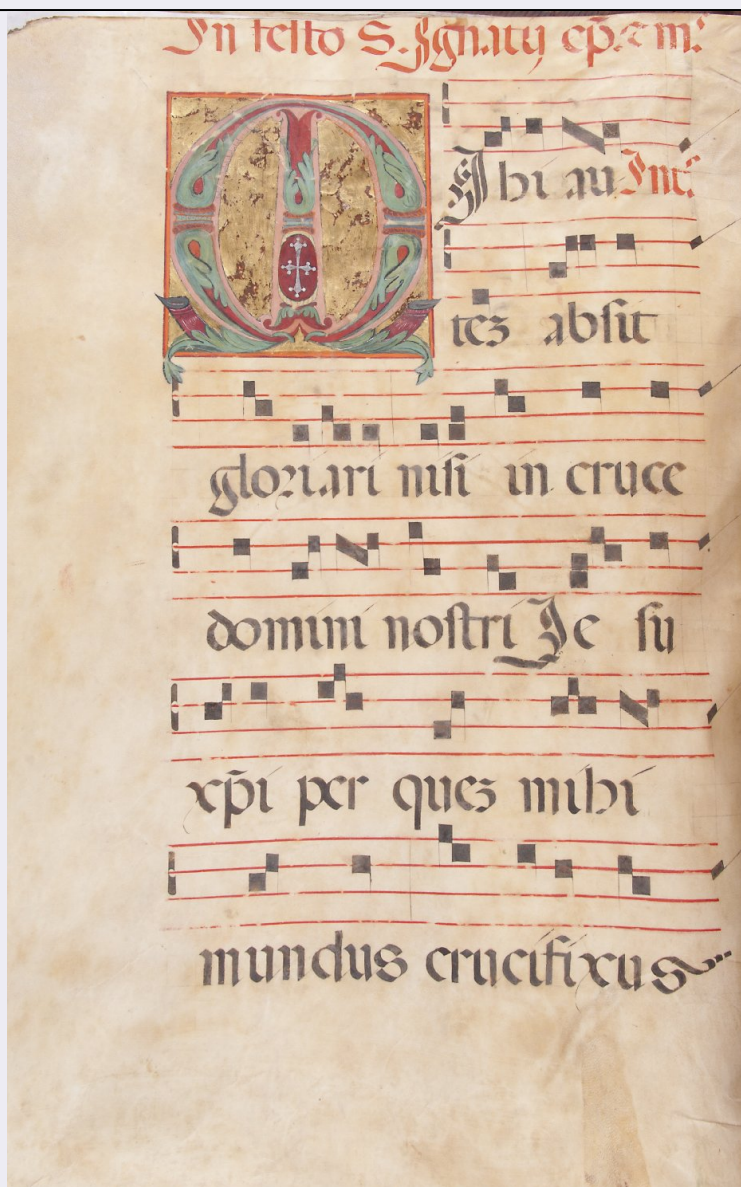 In festo S. Ignatij ep̄. & m:
MIhi au Int:
tez absit
gloriari nisi in cruce
domini nostri Je su
xp̄i per quez mihi
mundus crucifixus